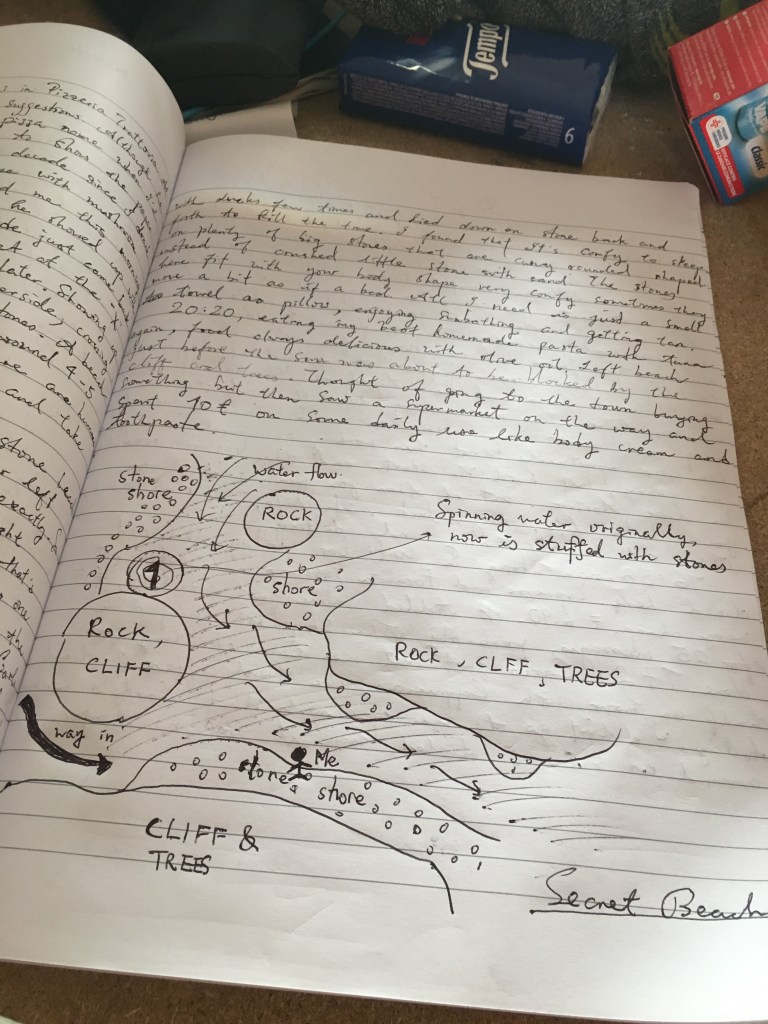 s in Pizzeria
suggestions although
pizza name
to show the
decade since I
with mushroom
me this
he showed
just came
at the
later. Showing
tones. A
around 4-5
are
and take
stone
left
exactly
that's
one
the
with ducks few times and lied down on stone bank and
to kill the time. I found that it's comfy to sleep
on plenty of big stones that are curvy rounded shaped
instead of crushed little stone with sand. The stones
here fit with your body shape very comfy sometimes they
move a bit as if a bed. All I need is just a small
towel as pillow, enjoying sunbathing and getting tan.
20:20, eating my best homemade pasta with tuna
again, food always delicious with olive oil. Left beach
just before the sun now about to be blocked by the
cliff and trees. Thought of going to the town buying
something but then saw a supermarket on the way and
spent 10€ on some daily use like body cream and
toothpaste.
stone
shore
water flow.
ROCK
Spinning water originally,
now is stuffed with stones
shore
ROCK,
CLIFF
ROCK, CLFF, TREES
way in
Me
stone
shore
CLIFF &
TREES
Secret Beach
Tempo
6
classic